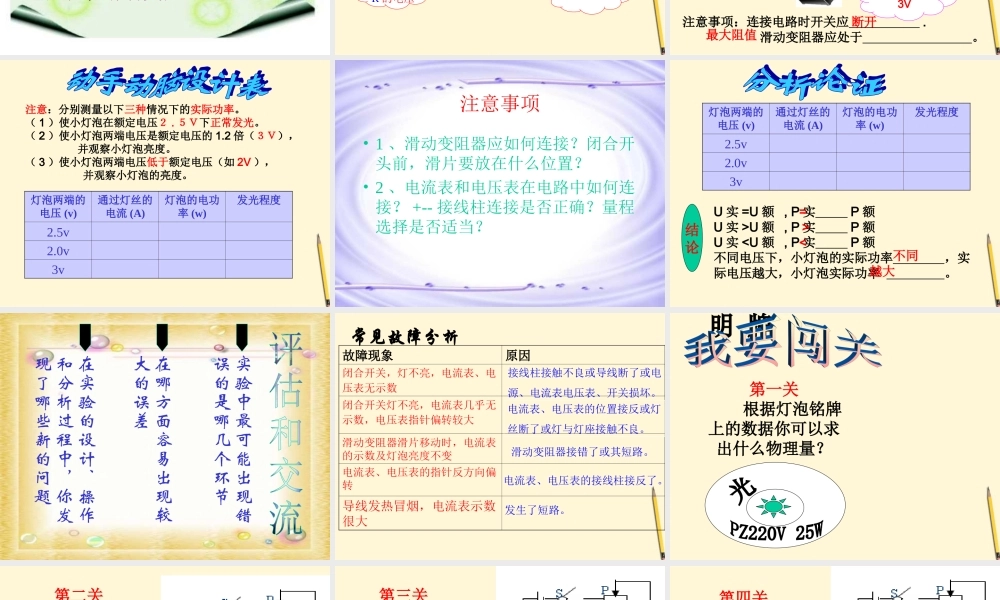 3V
注意事项：连接电路时开关应断开．
滑动变阻器应处于最大阻值。
动手动脑设计表
注意：分别测量以下三种情况下的实际功率。
（1）使小灯泡在额定电压２．５Ｖ下正常发光。
（2）使小灯泡两端电压是额定电压的 1.2 倍（３Ｖ），
并观察小灯泡亮度。
（3）使小灯泡两端电压低于额定电压（如 2V），
并观察小灯泡的亮度。
灯泡两端的电压 (v) 通过灯丝的电流 (A) 灯泡的电功率 (w) 发光程度
2.5v
2.0v
3v
注意事项
• 1 、滑动变阻器应如何连接？闭合开
头前，滑片要放在什么位置？
• 2 、电流表和电压表在电路中如何连
接？ +-- 接线柱连接是否正确？量程
选择是否适当？
分析论证
灯泡两端的电压 (v) 通过灯丝的电流 (A) 灯泡的电功率 (w) 发光程度
2.5v
2.0v
3v
结论
U 实 =U 额 ，P 实 = P 额
U 实 >U 额 ，P 实 > P 额
U 实 <U 额 ，P 实 < P 额
不同电压下，小灯泡的实际功率不同，实
际电压越大，小灯泡实际功率越大。
评估和交流
实验中最可能出现错
误的是哪几个环节
在哪方面容易出现较
大的误差
在实验的设计、操作
和分析过程中，你发
现了哪些新的问题
常见故障分析
故障现象 原因
闭合开关，灯不亮，电流表、电压表无示数 接线柱接触不良或导线断了或电源、电流表电压表、开关损坏。
闭合开关灯不亮，电流表几乎无示数，电压表指针偏转较大 电流表、电压表的位置接反或灯丝断了或灯与灯座接触不良。
滑动变阻器滑片移动时，电流表的示数及灯泡亮度不变 滑动变阻器接错了或其短路。
电流表、电压表的指针反方向偏转 电流表、电压表的接线柱接反了。
导线发热冒烟，电流表示数很大 发生了短路。
我要闯关
第一关
根据灯泡铭牌
上的数据你可以求
出什么物理量？
光
PZ220V 25W
第二关
第三关
S P
第四关
S P